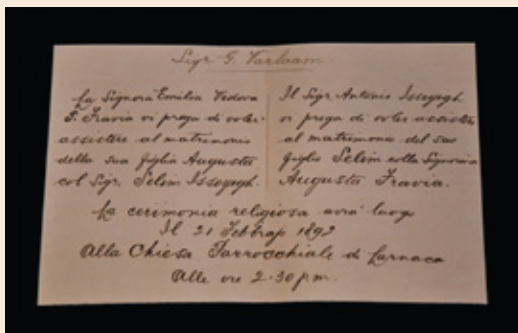 Sigr G. Varlaam
La Signora Emilia Vedova
vi prega di voler
assistere al matrimonio
della sua figlia Augusta
col Sigr. Selim
Il Sigr Antonio
vi prega di voler assistere
al matrimonio del suo
figlio Selim colla Signorina
Augusta
La cerimonia religiosa avrà luogo
Il 21 Febbrajo 1892
Alla Chiesa Parrocchiale di Larnaca
Alle ore 2.30 p.m.